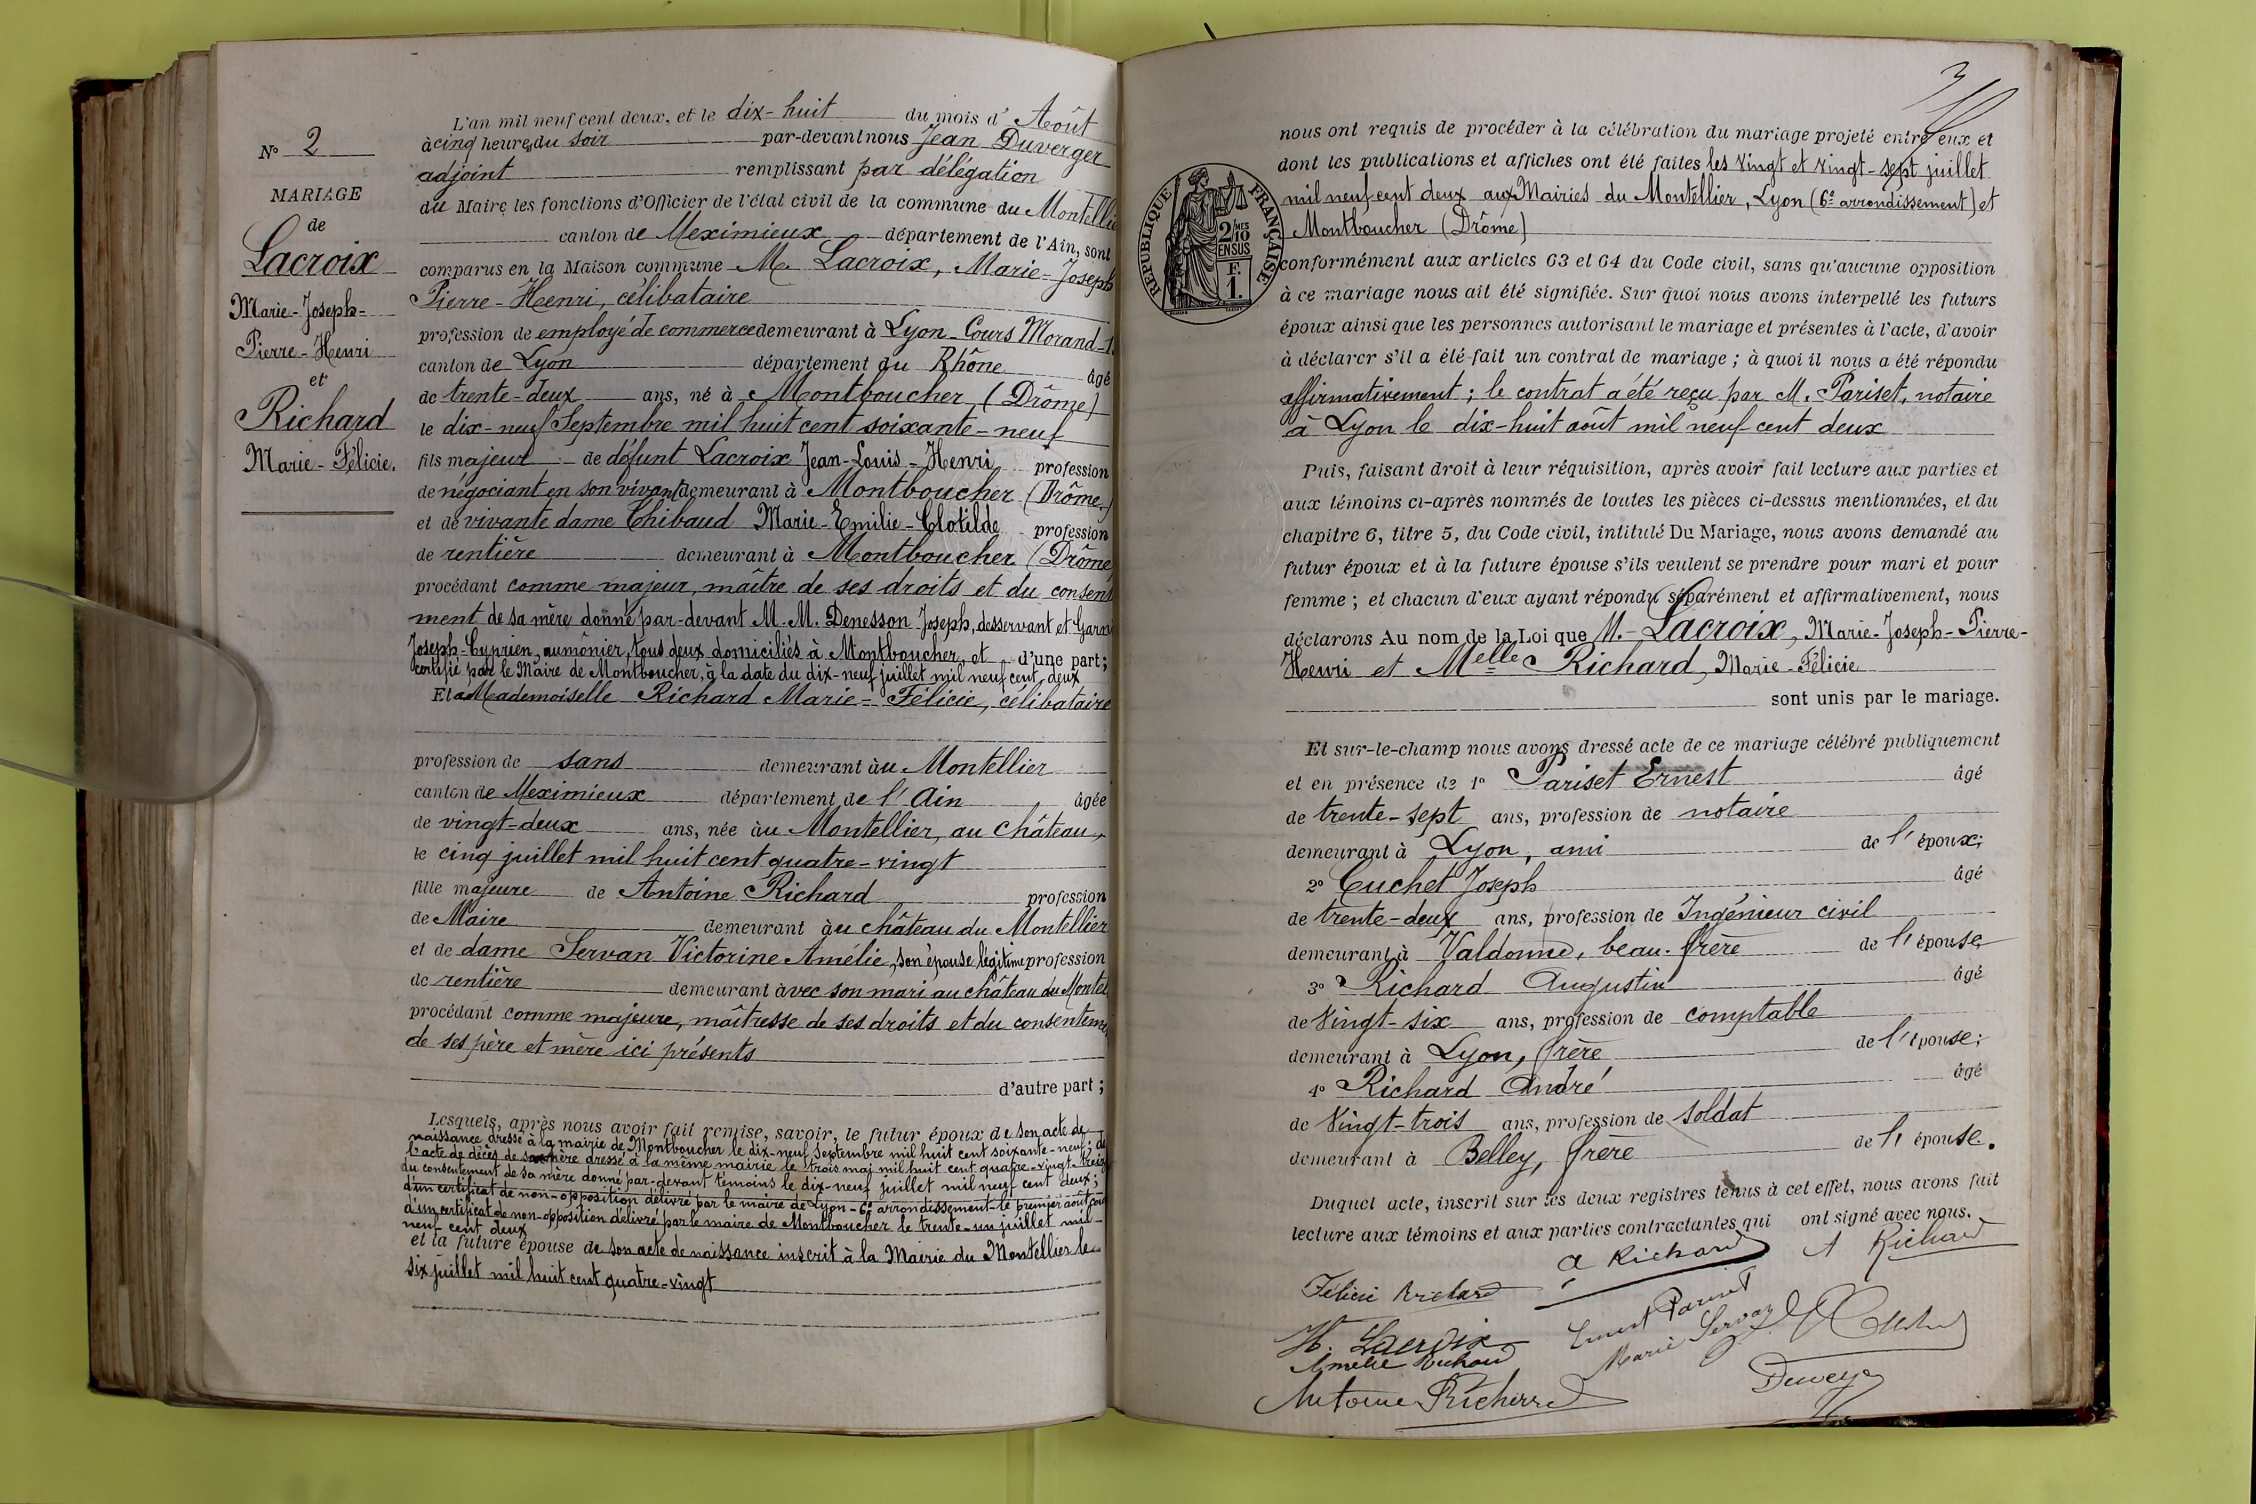 N° 2
MARIAGE
de
Lacroix
Marie-Joseph-
Pierre-Henri
et
Richard
Marie-Félicie.
L'an mil neuf cent deux, et le dix-huit du mois d'Août
à cinq heures du soir par-devant nous Jean Duverger
adjoint remplissant par délégation
du Maire les fonctions d'Officier de l'état civil de la commune du Montellie
canton de Meximieux département de l'Ain, sont
comparus en la Maison commune M. Lacroix, Marie=Joseph
Pierre-Henri, célibataire
profession de employé de commerce demeurant à Lyon-Cours Morand-
canton de Lyon département du Rhône âgé
de trente-deux ans, né à Montboucher (Drôme)
le dix-neuf Septembre mil huit cent soixante-neuf
fils majeur de défunt Lacroix Jean-Louis-Henri profession
de négociant en son vivant demeurant à Montboucher (Drôme)
et de vivante dame Thibaud Marie-Emilie-Clotilde profession
de rentière demeurant à Montboucher (Drôme
procédant comme majeur, maître de ses droits et du consent
ment de sa mère donné par-devant M.M. Denesson Joseph, desservant et Garn
Joseph-Cyprien, aumônier, tous deux domiciliés à Montboucher, et d'une part;
certifié par le Maire de Montboucher, à la date du dix-neuf juillet mil neuf cent deux
Et a Mademoiselle Richard Marie=Félicie, célibataire
profession de sans demeurant au Montellier
canton de Meximieux département de l'Ain âgée
de vingt-deux ans, née au Montellier, au château,
le cinq juillet mil huit cent quatre-vingt
fille majeure de Antoine Richard profession
de Maire demeurant au château du Montellier
et de dame Servan Victorine Amélie, son épouse légitime profession
de rentière demeurant avec son mari au château du Montel
procédant comme majeure, maîtresse de ses droits et du consenteme
de ses père et mère ici présents
d'autre part;
Lesquels, après nous avoir fait remise, savoir, le futur époux de son acte de
naissance dressé à la mairie de Montboucher le dix-neuf Septembre mil huit cent soixante-neuf; de
l'acte de décès de son père dressé à la même mairie le trois mai mil huit cent quatre-vingt-treize
du consentement de sa mère donné par-devant témoins le dix-neuf juillet mil neuf cent deux;
d'un certificat de non-opposition délivré par le maire de Lyon-6e arrondissement-le premier août
d'un certificat de non-opposition délivré par le maire de Montboucher le trente-un juillet mil-
neuf cent deux
et la future épouse de son acte de naissance inscrit à la Mairie du Montellier le
six juillet mil huit cent quatre-vingt
3
RÉPUBLIQUE FRANÇAISE
2/10 MES
EN SUS
F.
1.
nous ont requis de procéder à la célébration du mariage projeté entre eux et
dont les publications et affiches ont été faites les Vingt et Vingt-sept juillet
mil neuf cent deux aux Mairies du Montellier, Lyon (6e arrondissement) et
Montboucher (Drôme)
conformément aux articles 63 et 64 du Code civil, sans qu'aucune opposition
à ce mariage nous ait été signifiée. Sur quoi nous avons interpellé les futurs
époux ainsi que les personnes autorisant le mariage et présentes à l'acte, d'avoir
à déclarer s'il a été fait un contrat de mariage; à quoi il nous a été répondu
affirmativement; le contrat a été reçu par M. Pariset, notaire
à Lyon le dix-huit août mil neuf cent deux
Puis, faisant droit à leur réquisition, après avoir fait lecture aux parties et
aux témoins ci-après nommés de toutes les pièces ci-dessus mentionnées, et du
chapitre 6, titre 5, du Code civil, intitulé Du Mariage, nous avons demandé au
futur époux et à la future épouse s'ils veulent se prendre pour mari et pour
femme; et chacun d'eux ayant répondu séparément et affirmativement, nous
déclarons Au nom de la Loi que M.- Lacroix, Marie-Joseph-Pierre-
Henri et Melle Richard, Marie-Félicie
sont unis par le mariage.
Et sur-le-champ nous avons dressé acte de ce mariage célébré publiquement
et en présence de 1° Pariset Ernest âgé
de trente-sept ans, profession de notaire
demeurant à Lyon, ami de l'époux;
2° Cuchet Joseph âgé
de trente-deux ans, profession de Ingénieur civil
demeurant à Valdonne, beau-frère de l'épouse
3° Richard Augustin âgé
de Vingt-six ans, profession de comptable
demeurant à Lyon, frère de l'épouse;
4° Richard André âgé
de Vingt-trois ans, profession de soldat
demeurant à Belley, frère de l'épouse.
Duquel acte, inscrit sur les deux registres tenus à cet effet, nous avons fait
lecture aux témoins et aux parties contractantes qui ont signé avec nous.
A Richard A Richard
Félicie Richard
Ernest Pariset
H. Lacroix Marie Servan
Amélie Richard
Antoine Richard